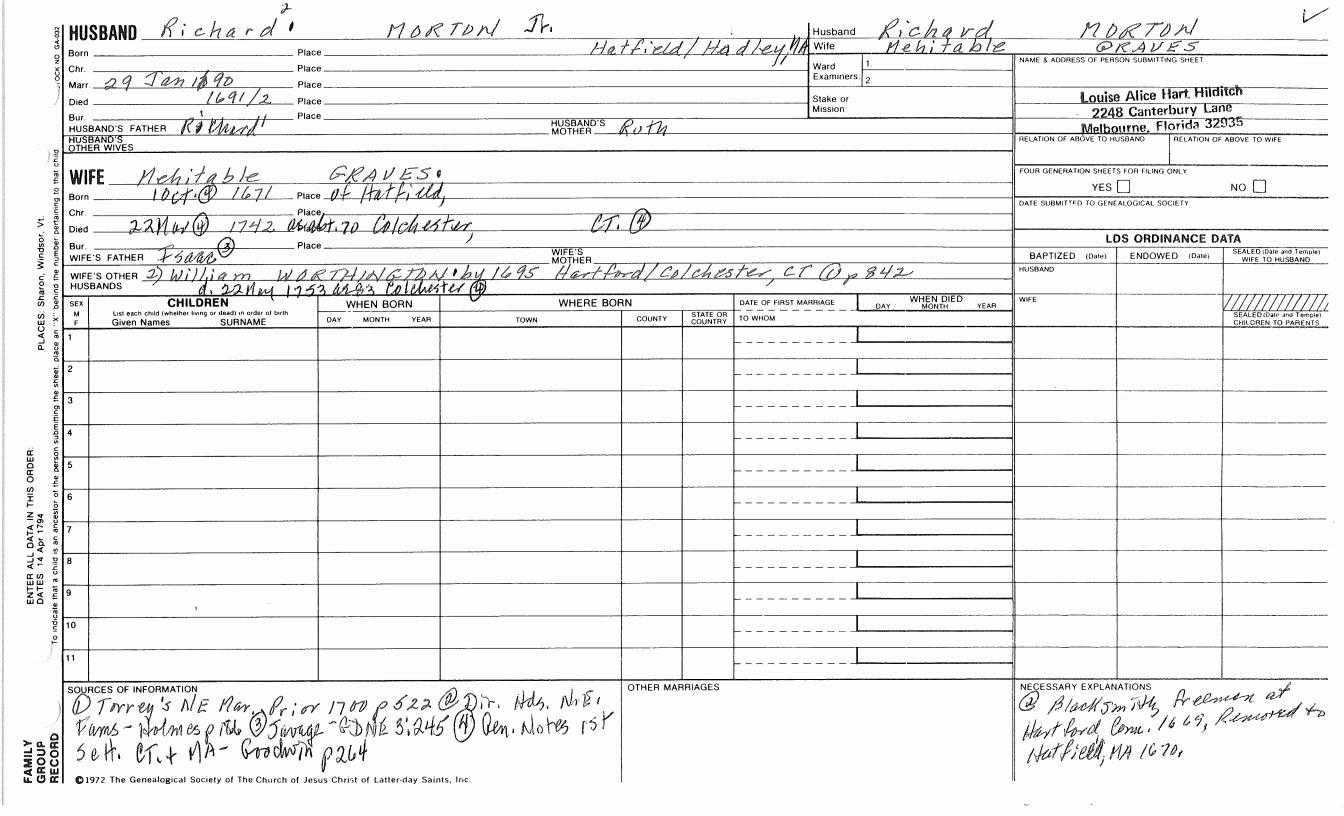 HUSBAND Richard² MORTON Jr.
Born Place Hatfield/Hadley, MA
Chr. Place
Marr 29 Jan 1690 Place
Died 1691/2 Place
Bur. Place
HUSBAND'S FATHER Richard¹ HUSBAND'S MOTHER Ruth
HUSBAND'S OTHER WIVES
Husband Richard MORTON
Wife Mehitable GRAVES
Ward Examiners: 1. 2.
Stake or Mission
NAME & ADDRESS OF PERSON SUBMITTING SHEET
Louise Alice Hart Hilditch
2248 Canterbury Lane
Melbourne, Florida 32935
RELATION OF ABOVE TO HUSBAND RELATION OF ABOVE TO WIFE
FOUR GENERATION SHEETS FOR FILING ONLY
YES NO
DATE SUBMITTED TO GENEALOGICAL SOCIETY
WIFE Mehitable GRAVES
Born 1 Oct. ④ 1671 Place of Hatfield,
Chr. Place
Died 22 Mar ④ 1742 abt. 70 Colchester, CT. ④
Bur. Place
WIFE'S FATHER Isaac ③ WIFE'S MOTHER
WIFE'S OTHER HUSBANDS 2) William WORTHINGTON by 1695 Hartford/Colchester, CT ① p 842
d. 22 May 1753 as 83 Colchester ④
LDS ORDINANCE DATA
BAPTIZED (Date) ENDOWED (Date) SEALED (Date and Temple) WIFE TO HUSBAND
HUSBAND
WIFE
SEALED (Date and Temple) CHILDREN TO PARENTS
SEX M F
CHILDREN
List each child (whether living or dead) in order of birth
Given Names SURNAME
WHEN BORN
DAY MONTH YEAR
WHERE BORN
TOWN COUNTY STATE OR COUNTRY
DATE OF FIRST MARRIAGE
TO WHOM
WHEN DIED
DAY MONTH YEAR
1
2
3
4
5
6
7
8
9
10
11
SOURCES OF INFORMATION
① Torrey's NE Mar. Prior 1700 p 522 ② Dir. Hds. N.E.
Fams - Holmes p ③ Savage - GDNE 3:245 ④ Gen. Notes 1st
Sett. CT. + MA - Goodwin p 264
OTHER MARRIAGES
NECESSARY EXPLANATIONS
② Blacksmith, freeman at
Hartford, Conn. 1669, Removed to
Hatfield, MA 1670.
©1972 The Genealogical Society of The Church of Jesus Christ of Latter-day Saints, Inc.
FAMILY GROUP RECORD
ENTER ALL DATA IN THIS ORDER:
DATES: 14 Apr 1794
PLACES: Sharon, Windsor, Vt.
To indicate that a child is an ancestor of the person submitting the sheet, place an "X" behind the number pertaining to that child